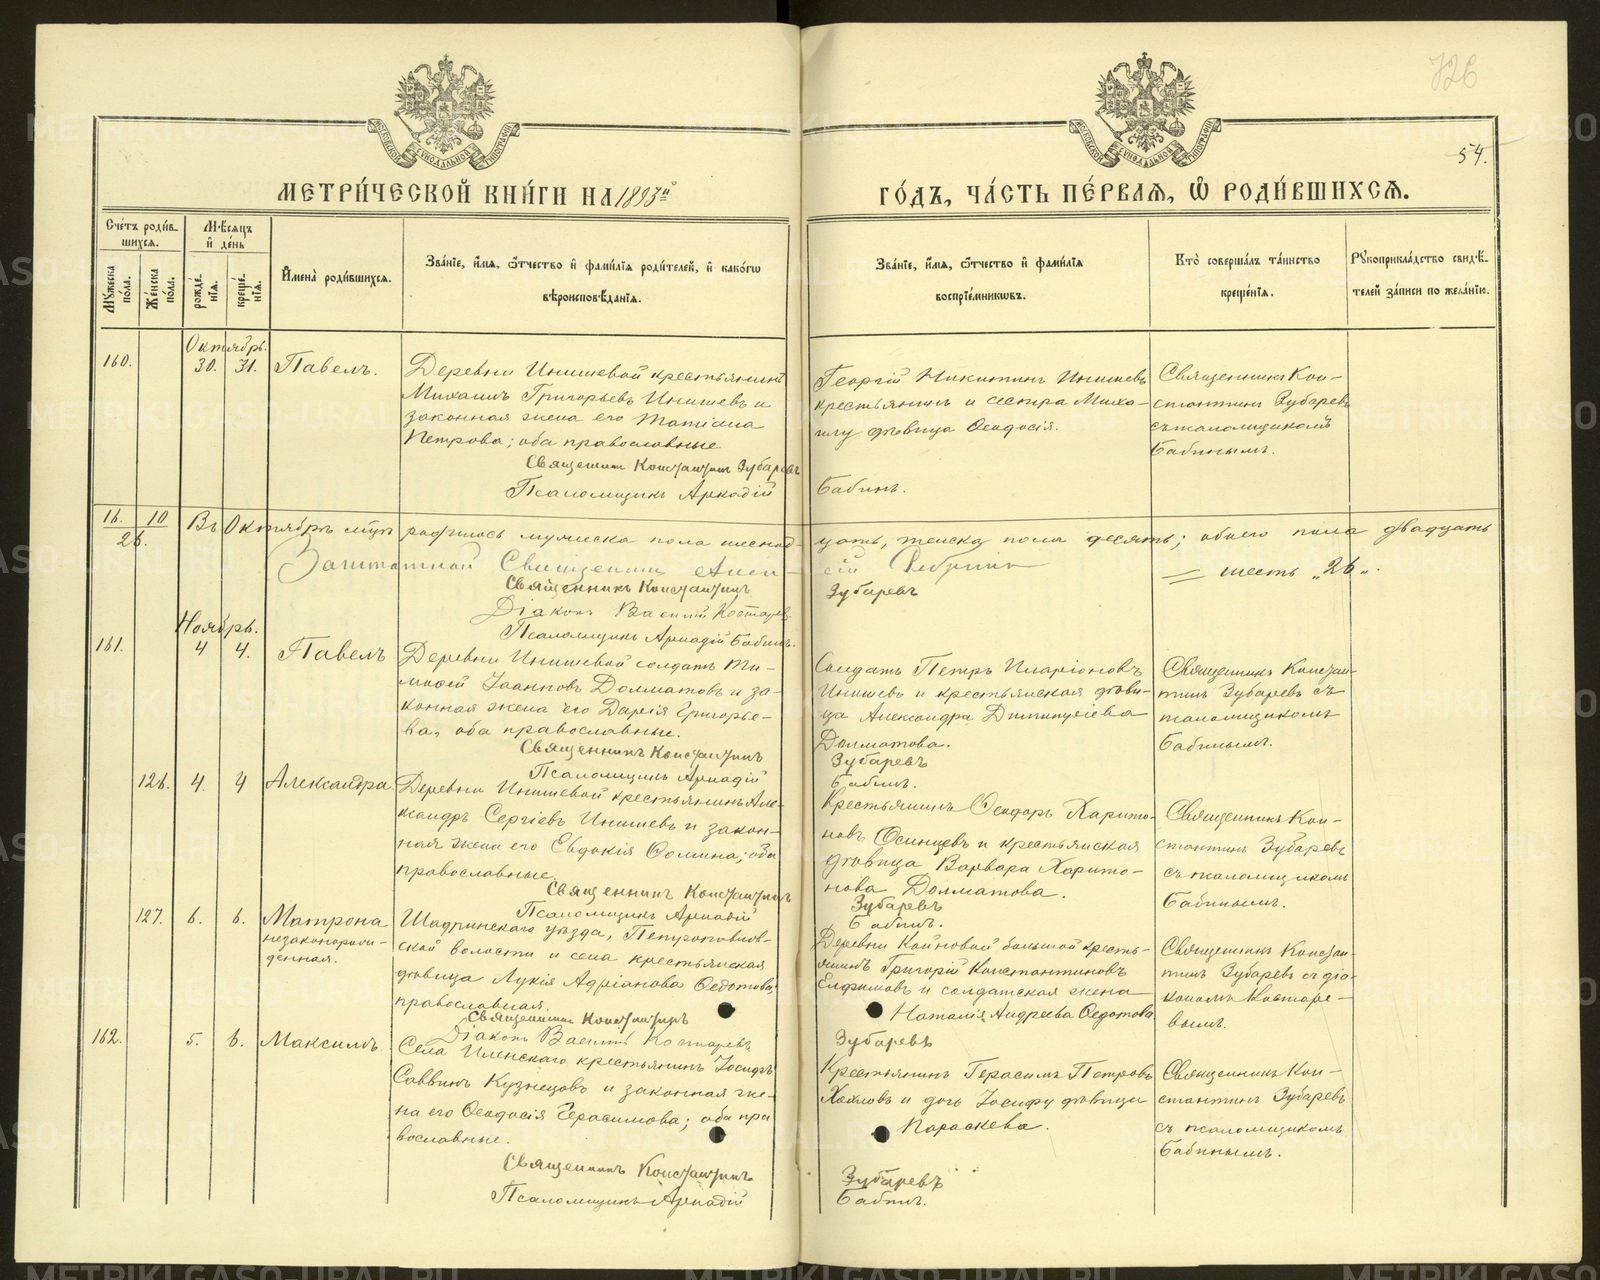 726
54.
МОСКОВСКОЙ СѴНОДАЛЬНОЙ ТИПОГРАФІИ
МОСКОВСКОЙ СѴНОДАЛЬНОЙ ТИПОГРАФІИ
МЕТРИ́ЧЕСКОЙ КНИ́ГИ НА 1893й
ГО́ДЪ, ЧА́СТЬ ПЕ́РВАЯ, Ѡ РОДИ́ВШИХСЯ.
Сче́тъ роди́в-
шихся.
Мѣ́сяцъ
и де́нь
Му́жеска по́ла.
Же́нска по́ла.
рожде́-
нія.
креще́-
нія.
Имена̀ роди́вшихся.
Зва́ніе, и́мя, ѻ́тчество и фами́лія роди́телей, и како́гѡ
вѣроисповѣ́данія.
Зва́ніе, и́мя, ѻ́тчество и фами́лія
воспріе́мникѡвъ.
Кто̀ соверша́лъ та́инство
креще́нія.
Рꙋкоприкла́дство свидѣ́-
телей за́писи по жела́нію.
Октябрь.
160.
30.
31.
Павелъ.
Деревни Инишевой крестьянинъ
Михаилъ Григорьевъ Инишевъ и
законная жена его Татіана
Петрова; оба православные
Священникъ Константинъ Зубаревъ
Псаломщикъ Аркадій
Георгій Никитинъ Инишевъ
крестьянинъ и сестра Миха-
илу дѣвица Ѳеодосія.
Бабинъ.
Священникъ Кон-
стантинъ Зубаревъ
съ псаломщикомъ
Бабинымъ.
16. 10
26.
Въ Октябрѣ мцѣ родилось мужеска пола шестнад-
цать, женска пола десять; обоего пола двадцать
шесть „26„.
Заштатный Священникъ
Священникъ Константинъ
Зубаревъ
Діаконъ Василій Костаревъ
Псаломщикъ Аркадій Бабинъ.
Ноябрь.
161.
4
4.
Павелъ
Деревни Инишевой солдатъ Ти-
мофей Іоанновъ Долматовъ и за-
конная жена его Дарія Григорье-
ва, оба православные.
Священникъ Константинъ
Псаломщикъ Аркадій
Солдатъ Петръ Иларіоновъ
Инишевъ и крестьянская дѣви-
ца Александра Димитріева
Долматова.
Зубаревъ
Бабинъ.
Священникъ Констан-
тинъ Зубаревъ съ
псаломщикомъ
Бабинымъ.
126.
4.
4
Александра
Деревни Инишевой крестьянинъ Але-
ксандръ Сергіевъ Инишевъ и закон-
ная жена его Евдокія Ѳомина; оба
православные.
Священникъ Константинъ
Псаломщикъ Аркадій
Крестьянинъ Ѳеодоръ Харито-
новъ Осинцевъ и крестьянская
дѣвица Варвара Харито-
нова Долматова.
Зубаревъ
Бабинъ.
Священникъ Кон-
стантинъ Зубаревъ
съ псаломщикомъ
Бабинымъ.
127.
6.
6.
Матрона
незаконорож-
денная.
Шадринскаго уѣзда, Петропавлов-
ской волости и села крестьянская
дѣвица Лукія Адріанова Ѳедотова,
православная.
Священникъ Константинъ
Діаконъ Василій Костаревъ
Деревни Койновой большой кресть-
янинъ Григорій Константиновъ
Елфимовъ и солдатская жена
Наталія Андреева Ѳедотова
Зубаревъ
Священникъ Констан-
тинъ Зубаревъ съ діа-
кономъ Костаре-
вымъ.
162.
5.
6.
Максимъ.
Села Иленскаго крестьянинъ Іосифъ
Саввинъ Кузнецовъ и законная же-
на его Ѳеодосія Герасимова; оба пра
вославные.
Священникъ Константинъ
Псаломщикъ Аркадій
Крестьянинъ Герасимъ Петровъ
Хохловъ и дочь Іосифу дѣвица
Параскева.
Зубаревъ
Бабинъ.
Священникъ Кон-
стантинъ Зубаревъ
съ псаломщикомъ
Бабинымъ.
METRIKI.GASO-URAL.RU